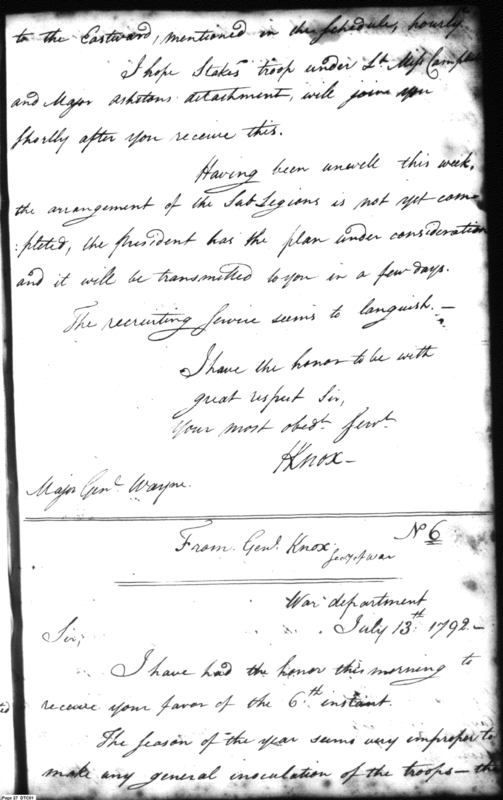 to the Eastward, mentioned in the schedule, hourly
I hope Stakes troop under Lt. Miss Campbell
and Major ashetons detachment, will join you
shortly after you receive this.
Having been unwell this week,
the arrangement of the Sub Legions is not yet com-
:pleted, the President has the plan under consideration
and it will be transmitted to you in a few days.
The recruiting service seems to languish.—
I have the honor to be with
great respect Sir,
Your most obedt. Servt.
HKnox—
Major Genl. Wayne.
No 6
From Genl. Knox Secy of war
War department
July 13th. 1792.—
Sir,
I have had the honor this morning to
receive your favor of the 6th. instant.
The season of the year seems very improper to
make any general inoculation of the troops— the
Page 27 DTC01